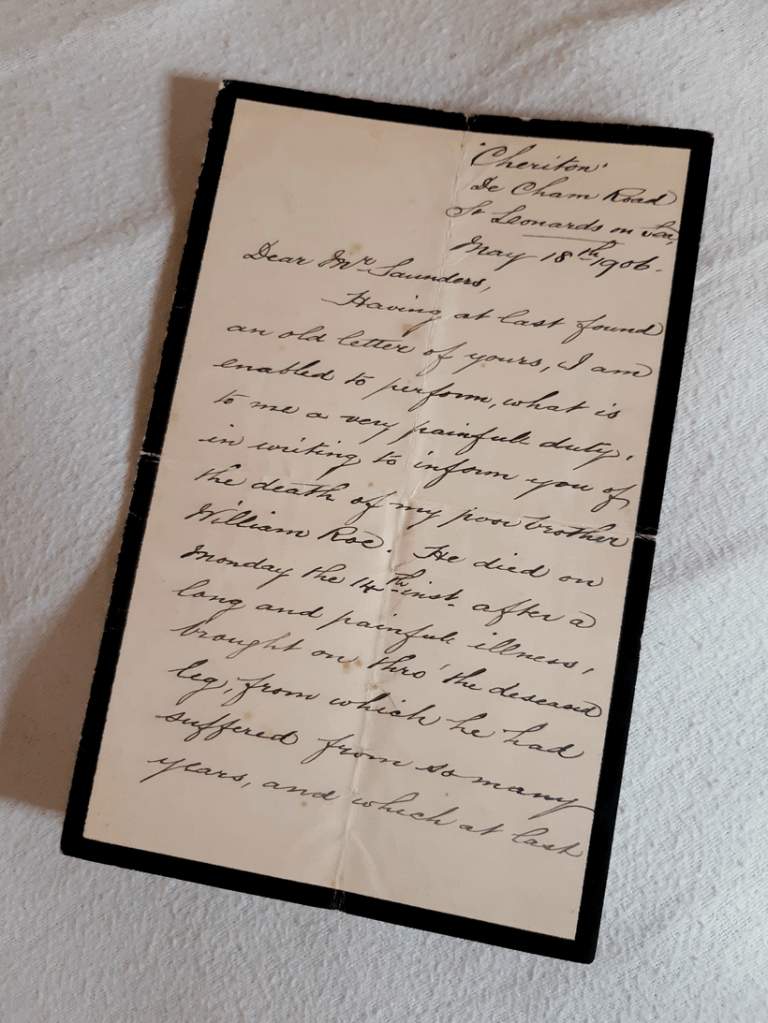 'Cheriton'
De Cham Road
St Leonards on Sea,
May 18th 1906.
Dear Mr Saunders,
Having at last found
an old letter of yours, I am
enabled to perform, what is
to me a very painfull duty,
in writing to inform you of
the death of my poor brother
William Roe. He died on
Monday the 14th inst. after a
long and painfull illness,
brought on thro' the deseased
leg, from which he had
suffered from so many
years, and which at last